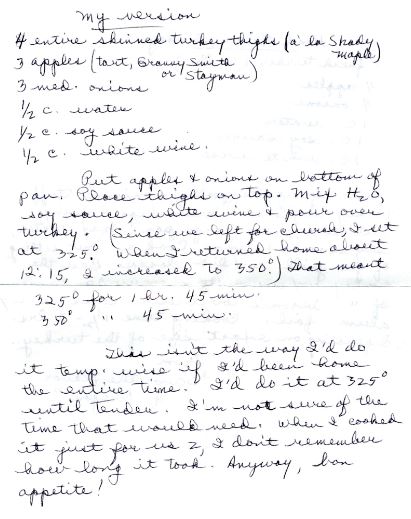 My version
4 entire skinned turkey thighs (a' la Shady Maple)
3 apples (tart, Granny Smith or Stayman)
3 med. onions
1/2 c. water
1/2 c. soy sauce
1/2 c. white wine.
Put apples & onions on bottom of
pan. Place thighs on top. Mix H2O,
soy sauce, white wine & pour over
turkey. (Since we left for church, I set
at 325°. When I returned home about
12:15, I increased to 350°.) That meant
325° for 1 hr. 45 min.
350° " 45 min.
This isn't the way I'd do
it temp. wise if I'd been home
the entire time. I'd do it at 325°
until tender. I'm not sure of the
time that would need. When I cooked
it just for us 2, I don't remember
how long it took. Anyway, bon
appetite!